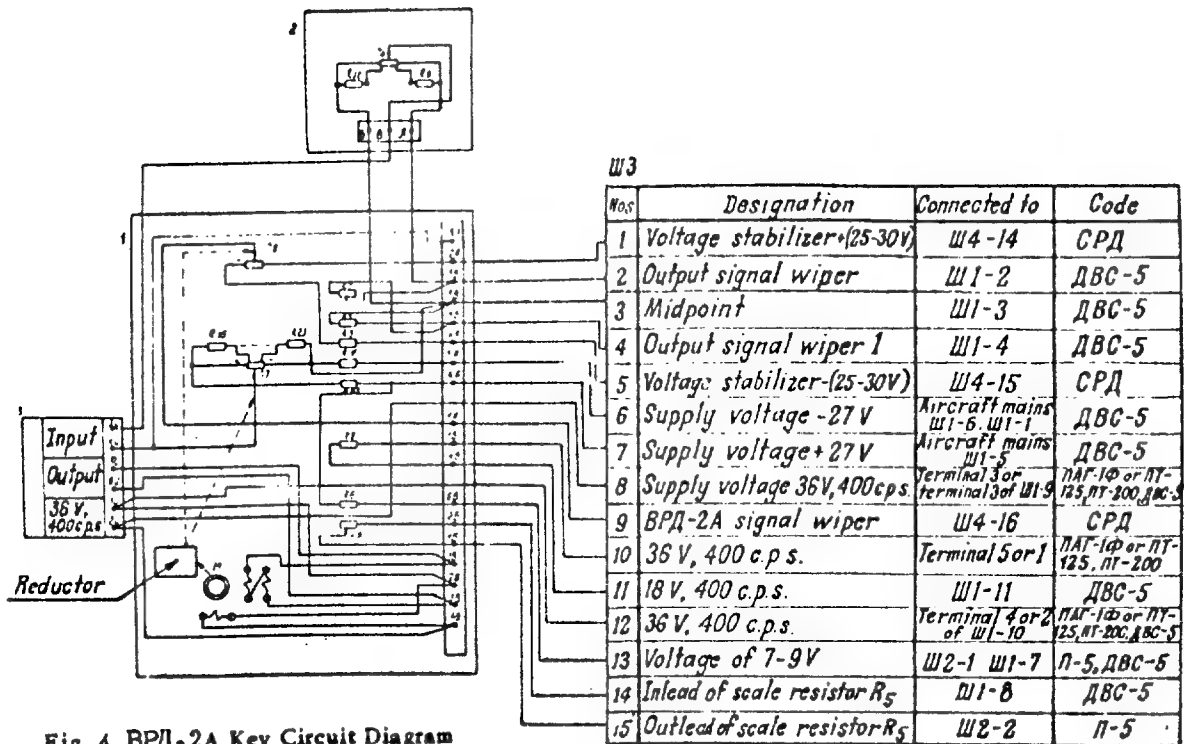 2
Д В А
1
3
Input
Output
36 V,
400 c.p.s
Reductor
M
Ш3
Nos Designation Connected to Code
1 Voltage stabilizer+(25-30V) Ш4-14 СРД
2 Output signal wiper Ш1-2 ДВС-5
3 Midpoint Ш1-3 ДВС-5
4 Output signal wiper 1 Ш1-4 ДВС-5
5 Voltage stabilizer-(25-30V) Ш4-15 СРД
6 Supply voltage -27 V Aircraft mains Ш1-6. Ш1-1 ДВС-5
7 Supply voltage + 27 V Aircraft mains Ш1-5 ДВС-5
8 Supply voltage 36V, 400cps. Terminal 3 or terminal 3 of Ш1-9 ПАГ-1Ф or ПТ-125, ПТ-200, ДВС-5
9 ВРД-2А signal wiper Ш4-16 СРД
10 36 V, 400 c.p.s. Terminal 5 or 1 ПАГ-1Ф or ПТ-125, ПТ-200
11 18 V, 400 c.p.s. Ш1-11 ДВС-5
12 36 V, 400 c.p.s. Terminal 4 or 2 of Ш1-10 ПАГ-1Ф or ПТ-125, ПТ-200, ДВС-5
13 Voltage of 7-9V Ш2-1 Ш1-7 П-5, ДВС-5
14 Inlead of scale resistor R5 Ш1-8 ДВС-5
15 Outlead of scale resistor R5 Ш2-2 П-5
Fig. 4. ВРД-2А Key Circuit Diagram